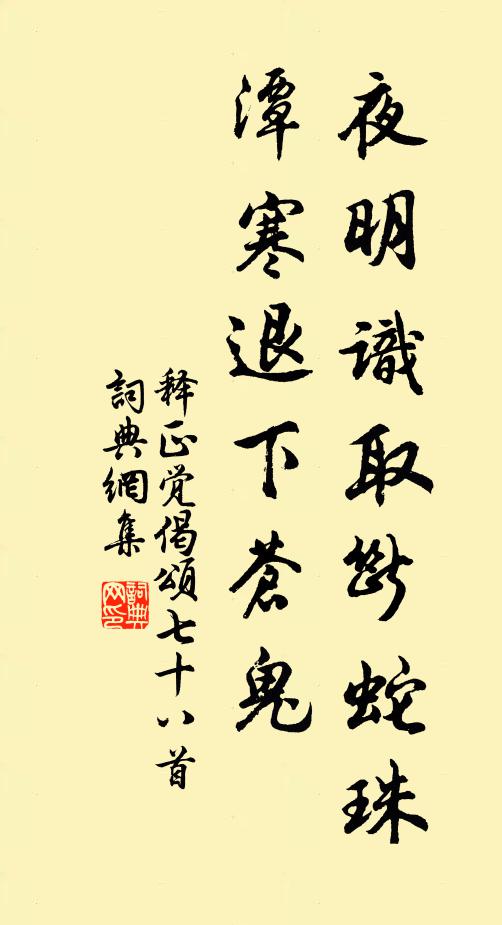 夜明識取斷蛇珠
潭寒退下蒼鬼
释正觉偈頌七十八首
詞典網集
詞典网印